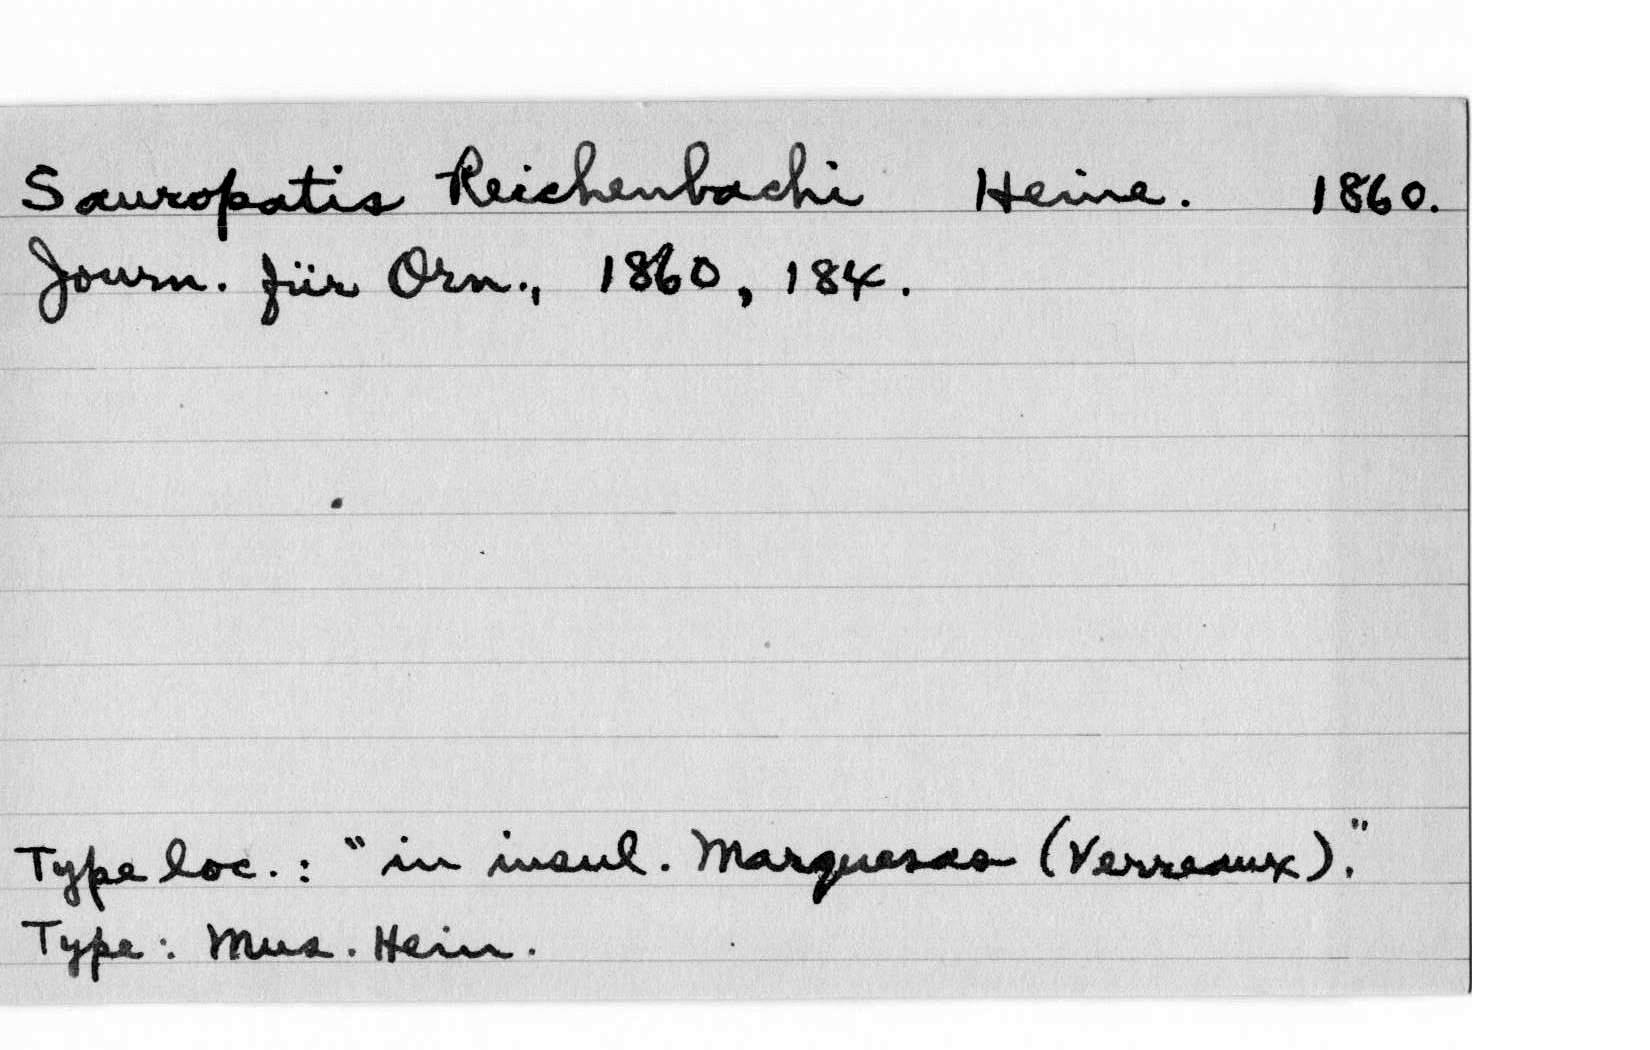 Sauropatis Reichenbachi Heine. 1860.
Journ. für Orn., 1860, 184.
Type loc.: "in insul. Marquesas (Verreaux)."
Type: Mus. Hein.